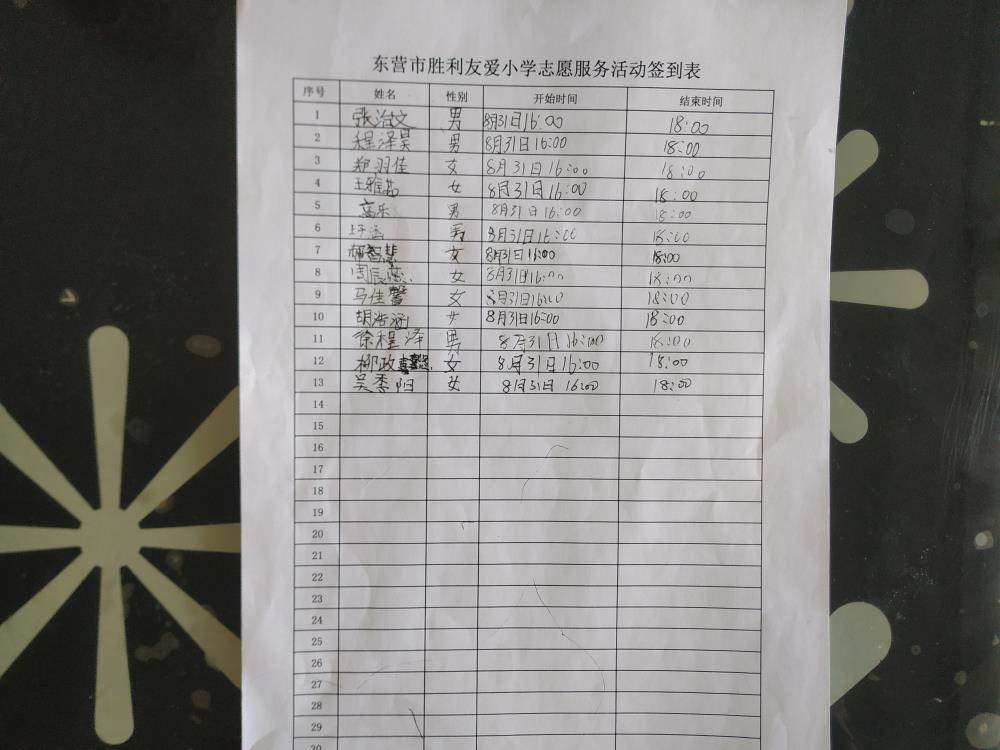 东营市胜利友爱小学志愿服务活动签到表
序号 姓名 性别 开始时间 结束时间
1 张治文 男 8月31日16:00 18:00
2 程泽昊 男 8月31日16:00 18:00
3 郑羽佳 女 8月31日16:00 18:00
4 王雅茹 女 8月31日16:00 18:00
5 高乐 男 8月31日16:00 18:00
6 男 8月31日16:00 18:00
7 智慧 女 8月31日16:00 18:00
8 周辰 女 8月31日16:00 18:00
9 马佳馨 女 8月31日16:00 18:00
10 胡浩涵 女 8月31日16:00 18:00
11 徐程泽 男 8月31日16:00 18:00
12 柳政 女 8月31日16:00 18:00
13 吴季阳 女 8月31日16:00 18:00
14
15
16
17
18
19
20
21
22
23
24
25
26
27
28
29
30